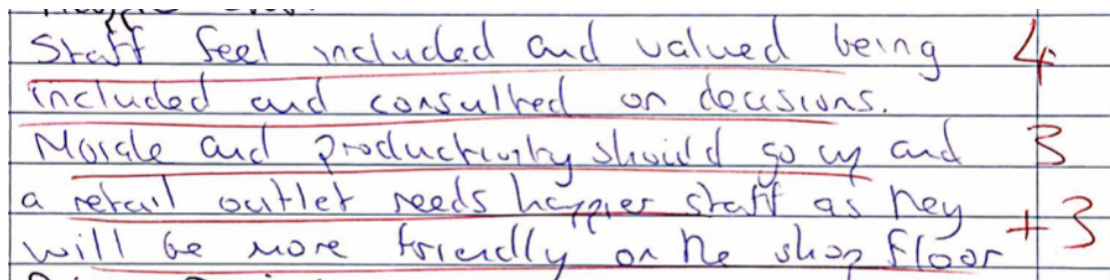 Staff feel included and valued being 4
included and consulted on decisions.
Morale and productivity should go up and 3
a retail outlet needs happier staff as they
will be more friendly on the shop floor +3